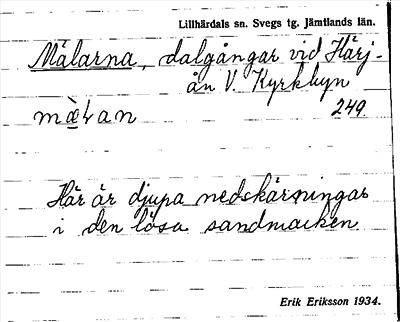 Lillhärdals sn. Svegs tg. Jämtlands län.
Mälarna, dalgångar vid Härj-
ån V. Kyrkbyn
249.
Här är djupa nedskärningar
i den lösa sandmarken.
Erik Eriksson 1934.